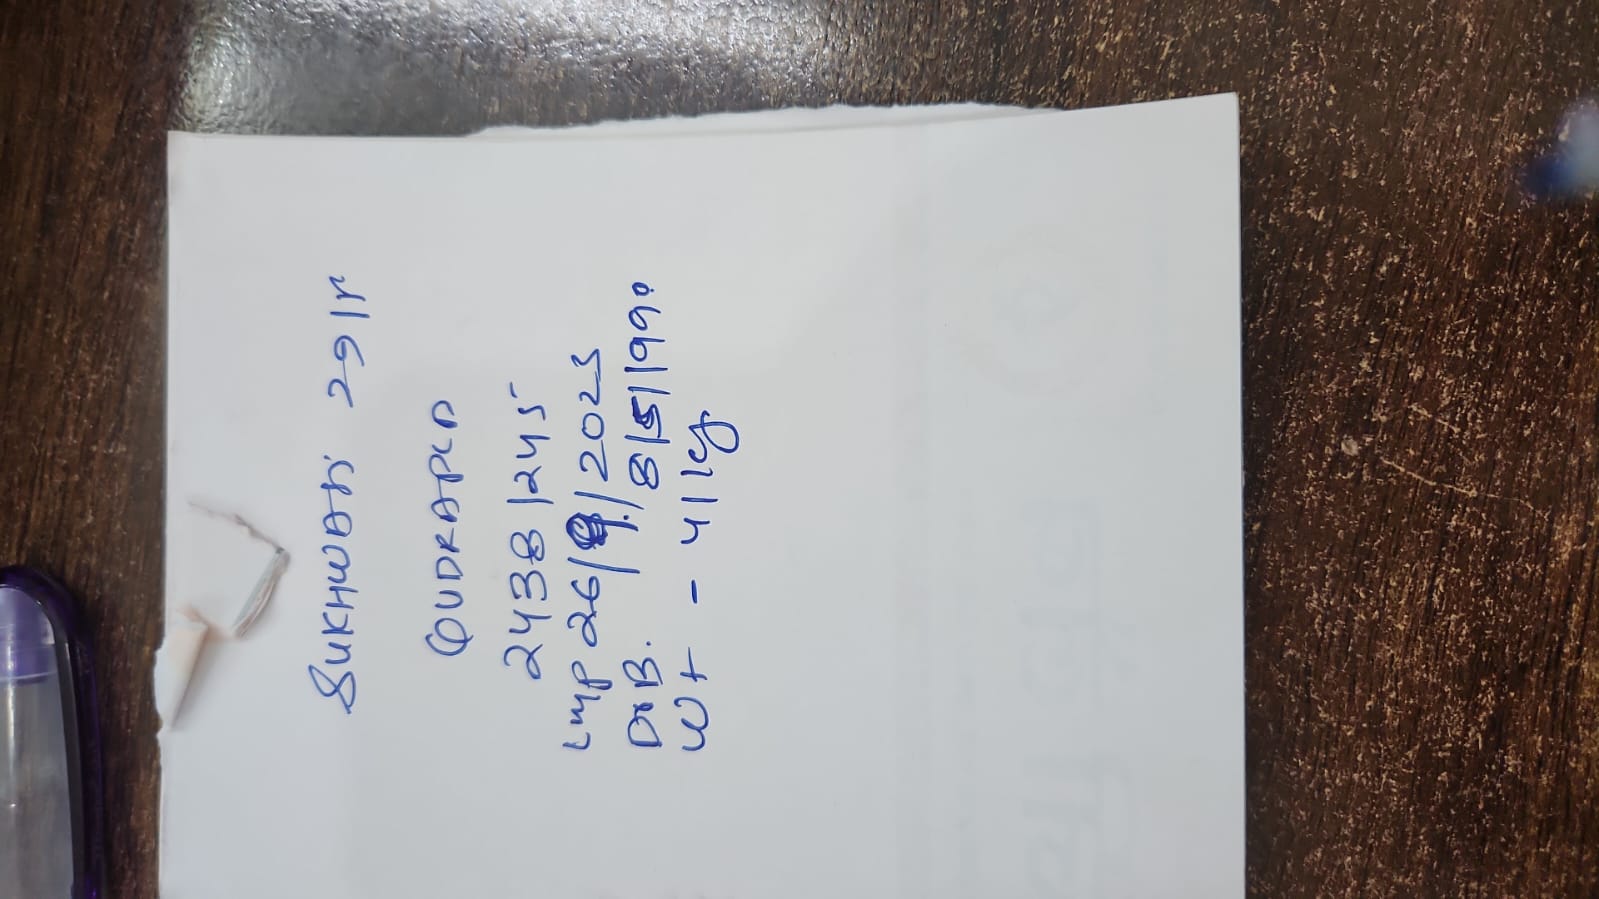 SUKHWATI 29/F
QUDRAPLE
2438/245
LMP 26/9/2023
DOB. 8/5/1990
Wt - 41 kg